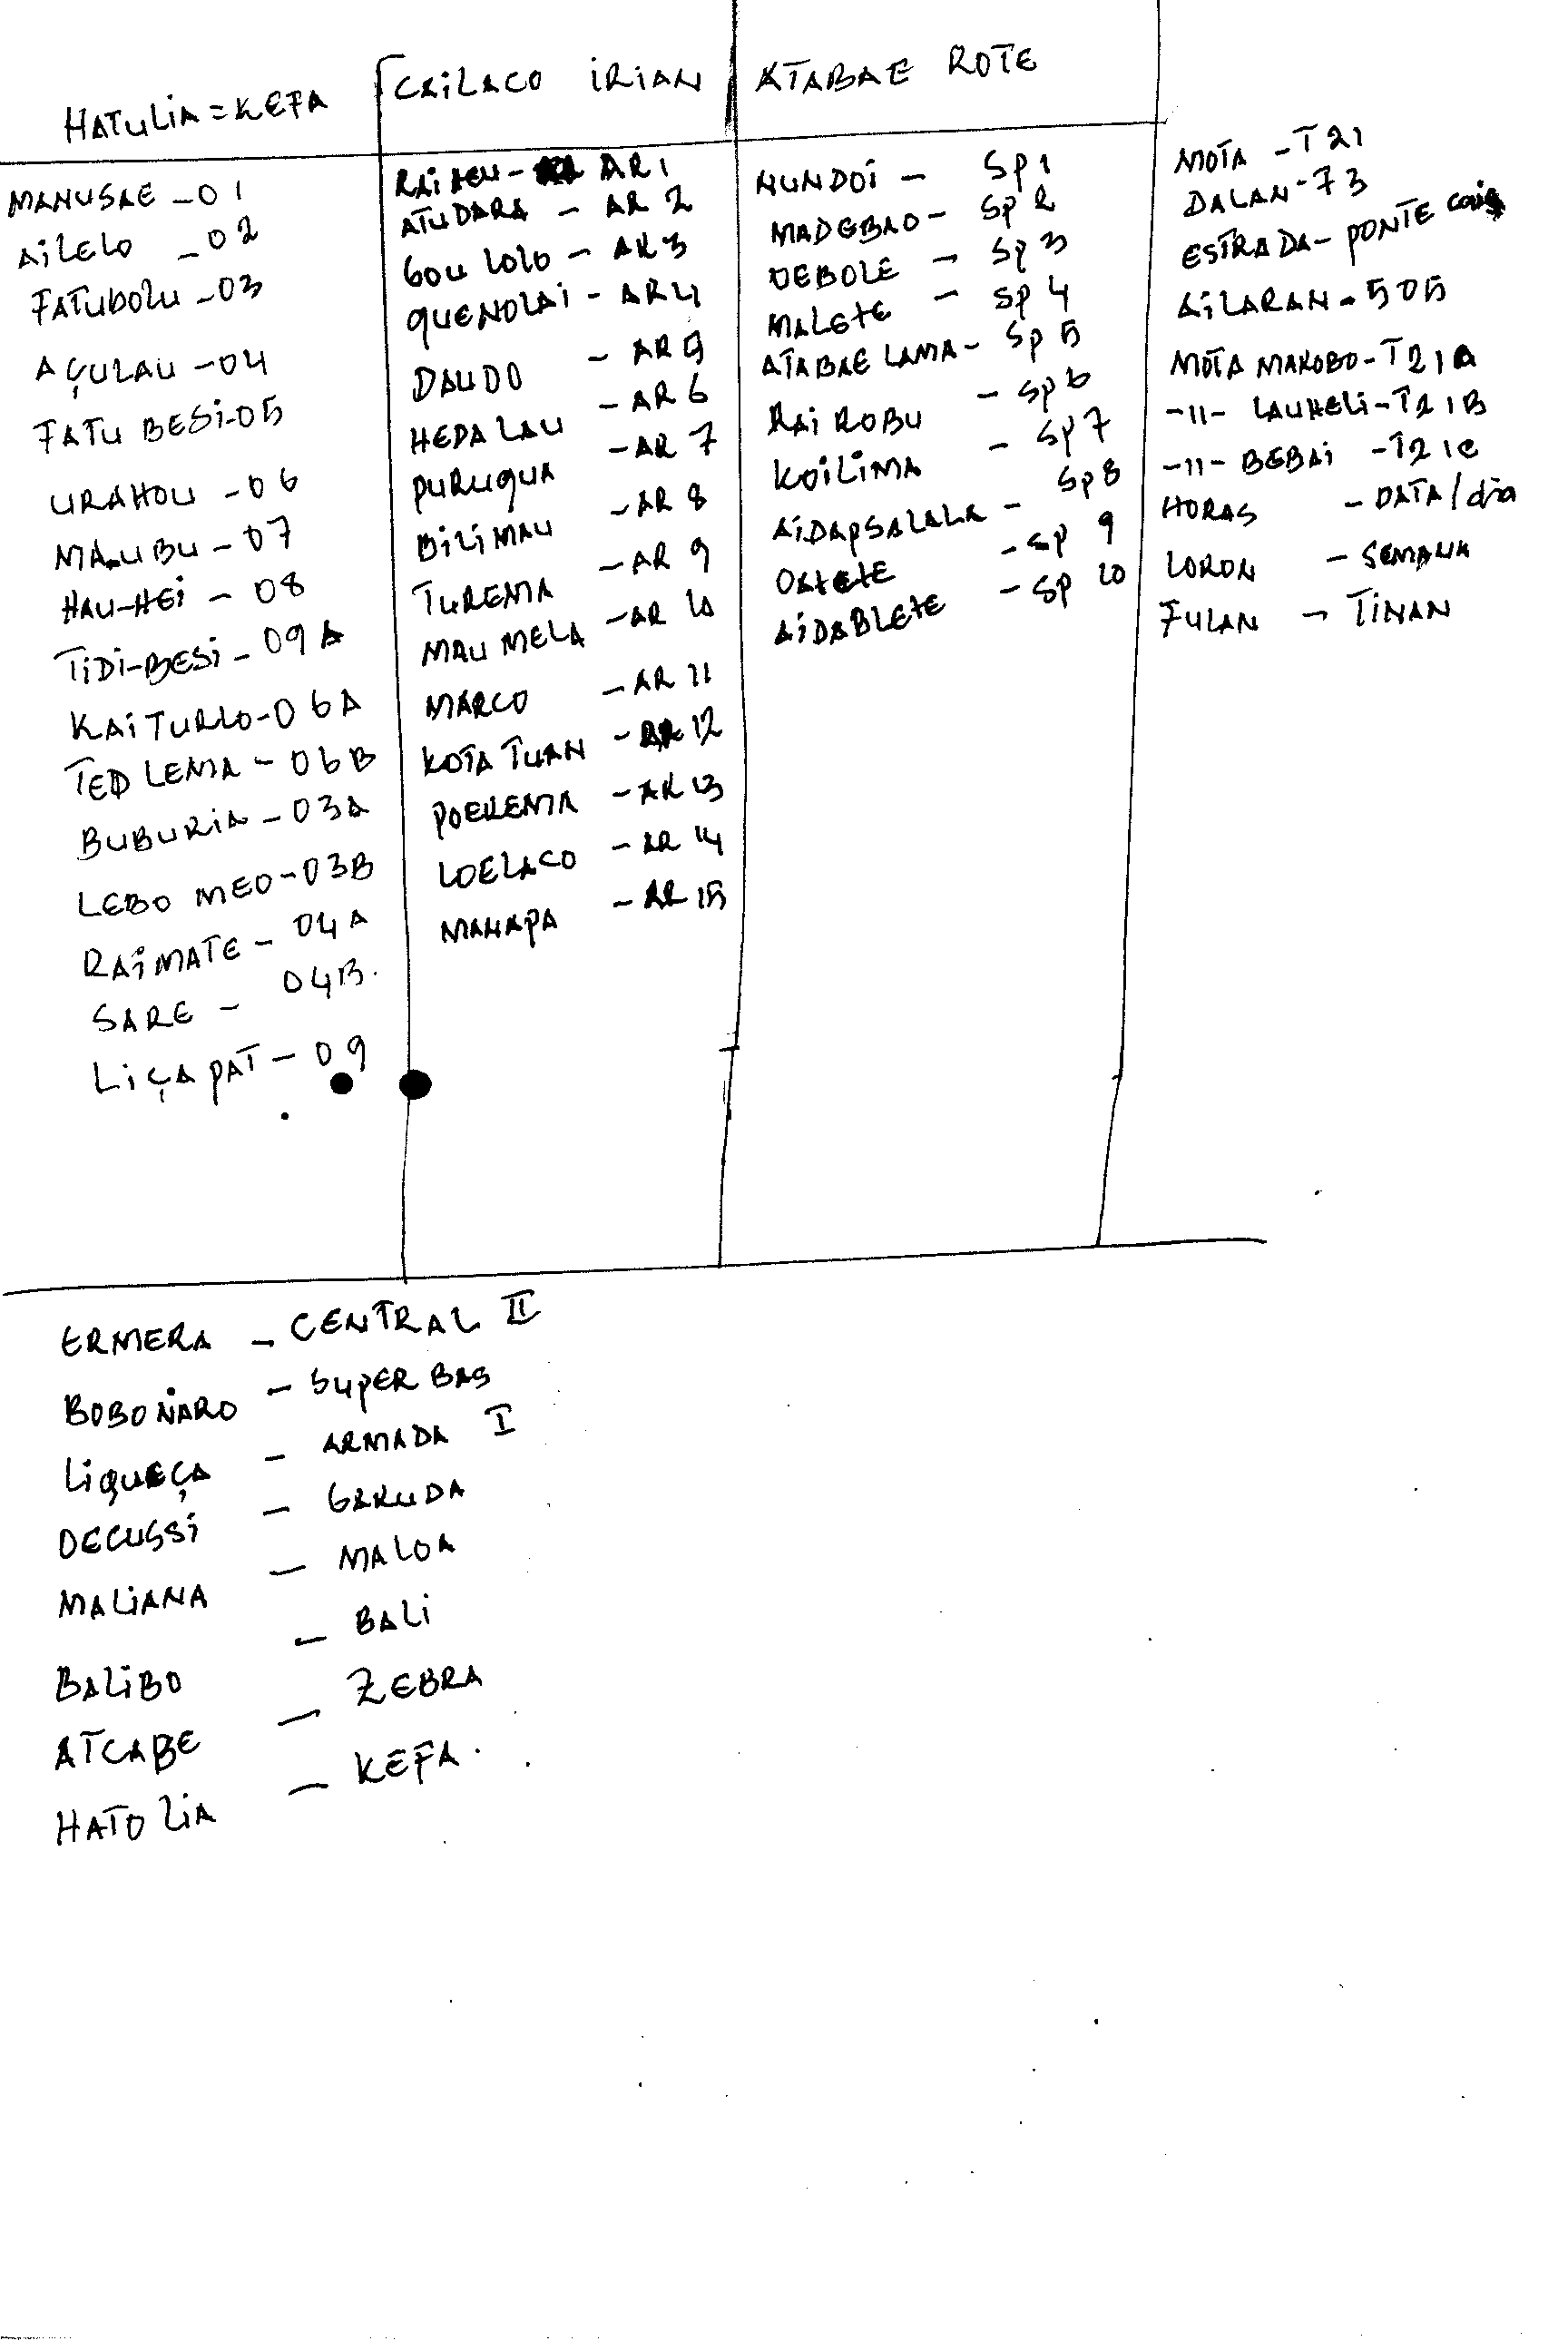 HATULIA = KEFA
MANUSAE - 01
AILELO - 02
FATUBOLU - 03
AÇULAU - 04
FATU BESI - 05
URAHOU - 06
MAUBU - 07
HAU-HEI - 08
TIDI-BESI - 09A
KAITURLO - 06A
LEMA - 06B
BUBURIA - 03A
LEBO MEO - 03B
RAIMATE - 04A
SARE - 04B.
LIÇAPAT - 09
CAILACO IRIAN
RAIHEU - AR1
ATUDARA - AR 2
GOU LOLO - AR 3
QUENOLAI - AR4
DAUDO - AR 5
HEDA LAU - AR 6
PURUQUA - AR 7
BILIMAU - AR 8
TUREMA - AR 9
MAU MELA - AR 10
MARCO - AR 11
KOTA TUAN - AR 12
POEREMA - AR 13
LOELACO - AR 14
MANAPA - AR 15
ATABAE ROTE
NUNDOI - Sp 1
MADEBAO - Sp 2
DEBOLE - Sp 3
MALETE - Sp 4
ATABAE LAMA - Sp 5
RAI ROBU - Sp 6
KOILIMA - Sp 7
AIDAPSALALA - Sp 8
- Sp 9
AIDABLETE - Sp 10
MOTA - T21
DALAN - 73
ESTRADA - PONTE
AILARAN - 505
MOTA MAROBO - T21A
-11- LAUHELI - T21B
-11- BEBAI - T21C
HORAS - DATA/dia
LORON - SEMANA
FULAN - TINAN
ERMERA - CENTRAL II
BOBONARO - SUPER BAS
LIQUEÇA - ARMADA I
OECUSSI - GARUDA
MALIANA - MALOA
BALIBO - BALI
ATCABE - ZEBRA
HATOLIA - KEFA.